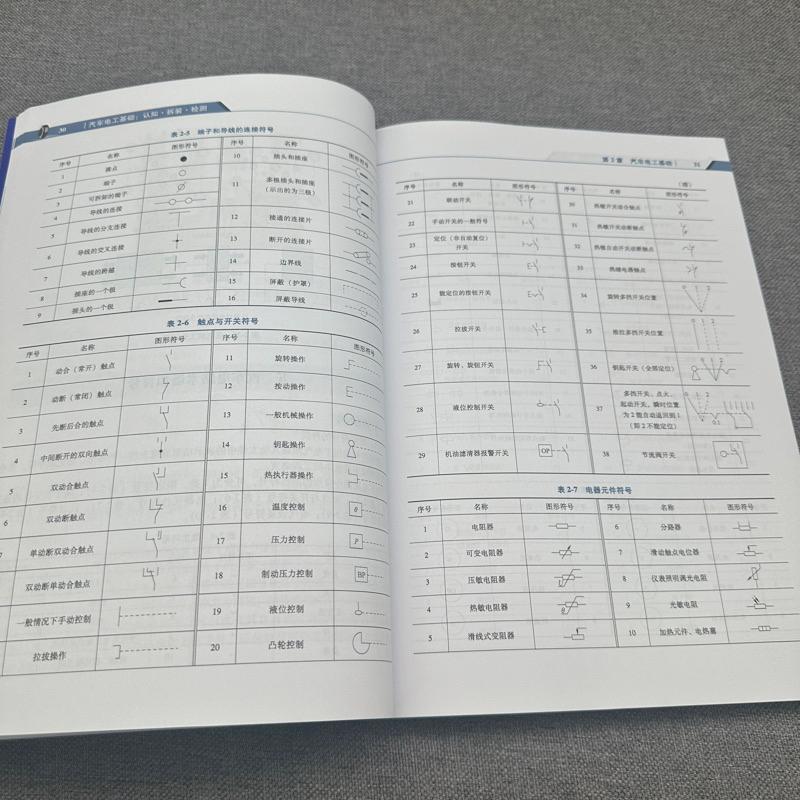 30 汽车电工基础：认知·拆装·检测
表 2-5 端子和导线的连接符号
序号 名称 图形符号 序号 名称 图形符号
1 接点 10 插头和插座
2 端子
3 可拆卸的端子 11 多极插头和插座（示出的为三极）
4 导线的连接
5 导线的分支连接 12 接通的连接片
6 导线的交叉连接 13 断开的连接片
7 导线的跨越 14 边界线
8 插座的一个极 15 屏蔽（护罩）
9 插头的一个极 16 屏蔽导线
表 2-6 触点与开关符号
序号 名称 图形符号 序号 名称 图形符号
1 动合（常开）触点 11 旋转操作
2 动断（常闭）触点 12 按动操作
3 先断后合的触点 13 一般机械操作
4 中间断开的双向触点 14 钥匙操作
5 双动合触点 15 热执行器操作
6 双动断触点 16 温度控制 θ
7 单动断双动合触点 17 压力控制 P
双动断单动合触点 18 制动压力控制 BP
一般情况下手动控制 19 液位控制
拉拔操作 20 凸轮控制
第 2 章 汽车电工基础 31
（续）
序号 名称 图形符号 序号 名称 图形符号
21 联动开关 30 热敏开关动合触点
22 手动开关的一般符号 31 热敏开关动断触点
23 定位（非自动复位）开关 32 热敏自动开关动断触点
24 按钮开关 33 热继电器触点
25 能定位的按钮开关 34 旋转多挡开关位置
26 拉拔开关 35 推拉多挡开关位置
27 旋转、旋钮开关 36 钥匙开关（全部定位）
28 液位控制开关 37 多挡开关、点火、起动开关，瞬时位置为 2 能自动返回到 1（即 2 不能定位）
29 机油滤清器报警开关 OP 38 节流阀开关
表 2-7 电器元件符号
序号 名称 图形符号 序号 名称 图形符号
1 电阻器 6 分路器
2 可变电阻器 7 滑动触点电位器
3 压敏电阻器 8 仪表照明调光电阻
4 热敏电阻器 9 光敏电阻
5 滑线式变阻器 10 加热元件、电热塞